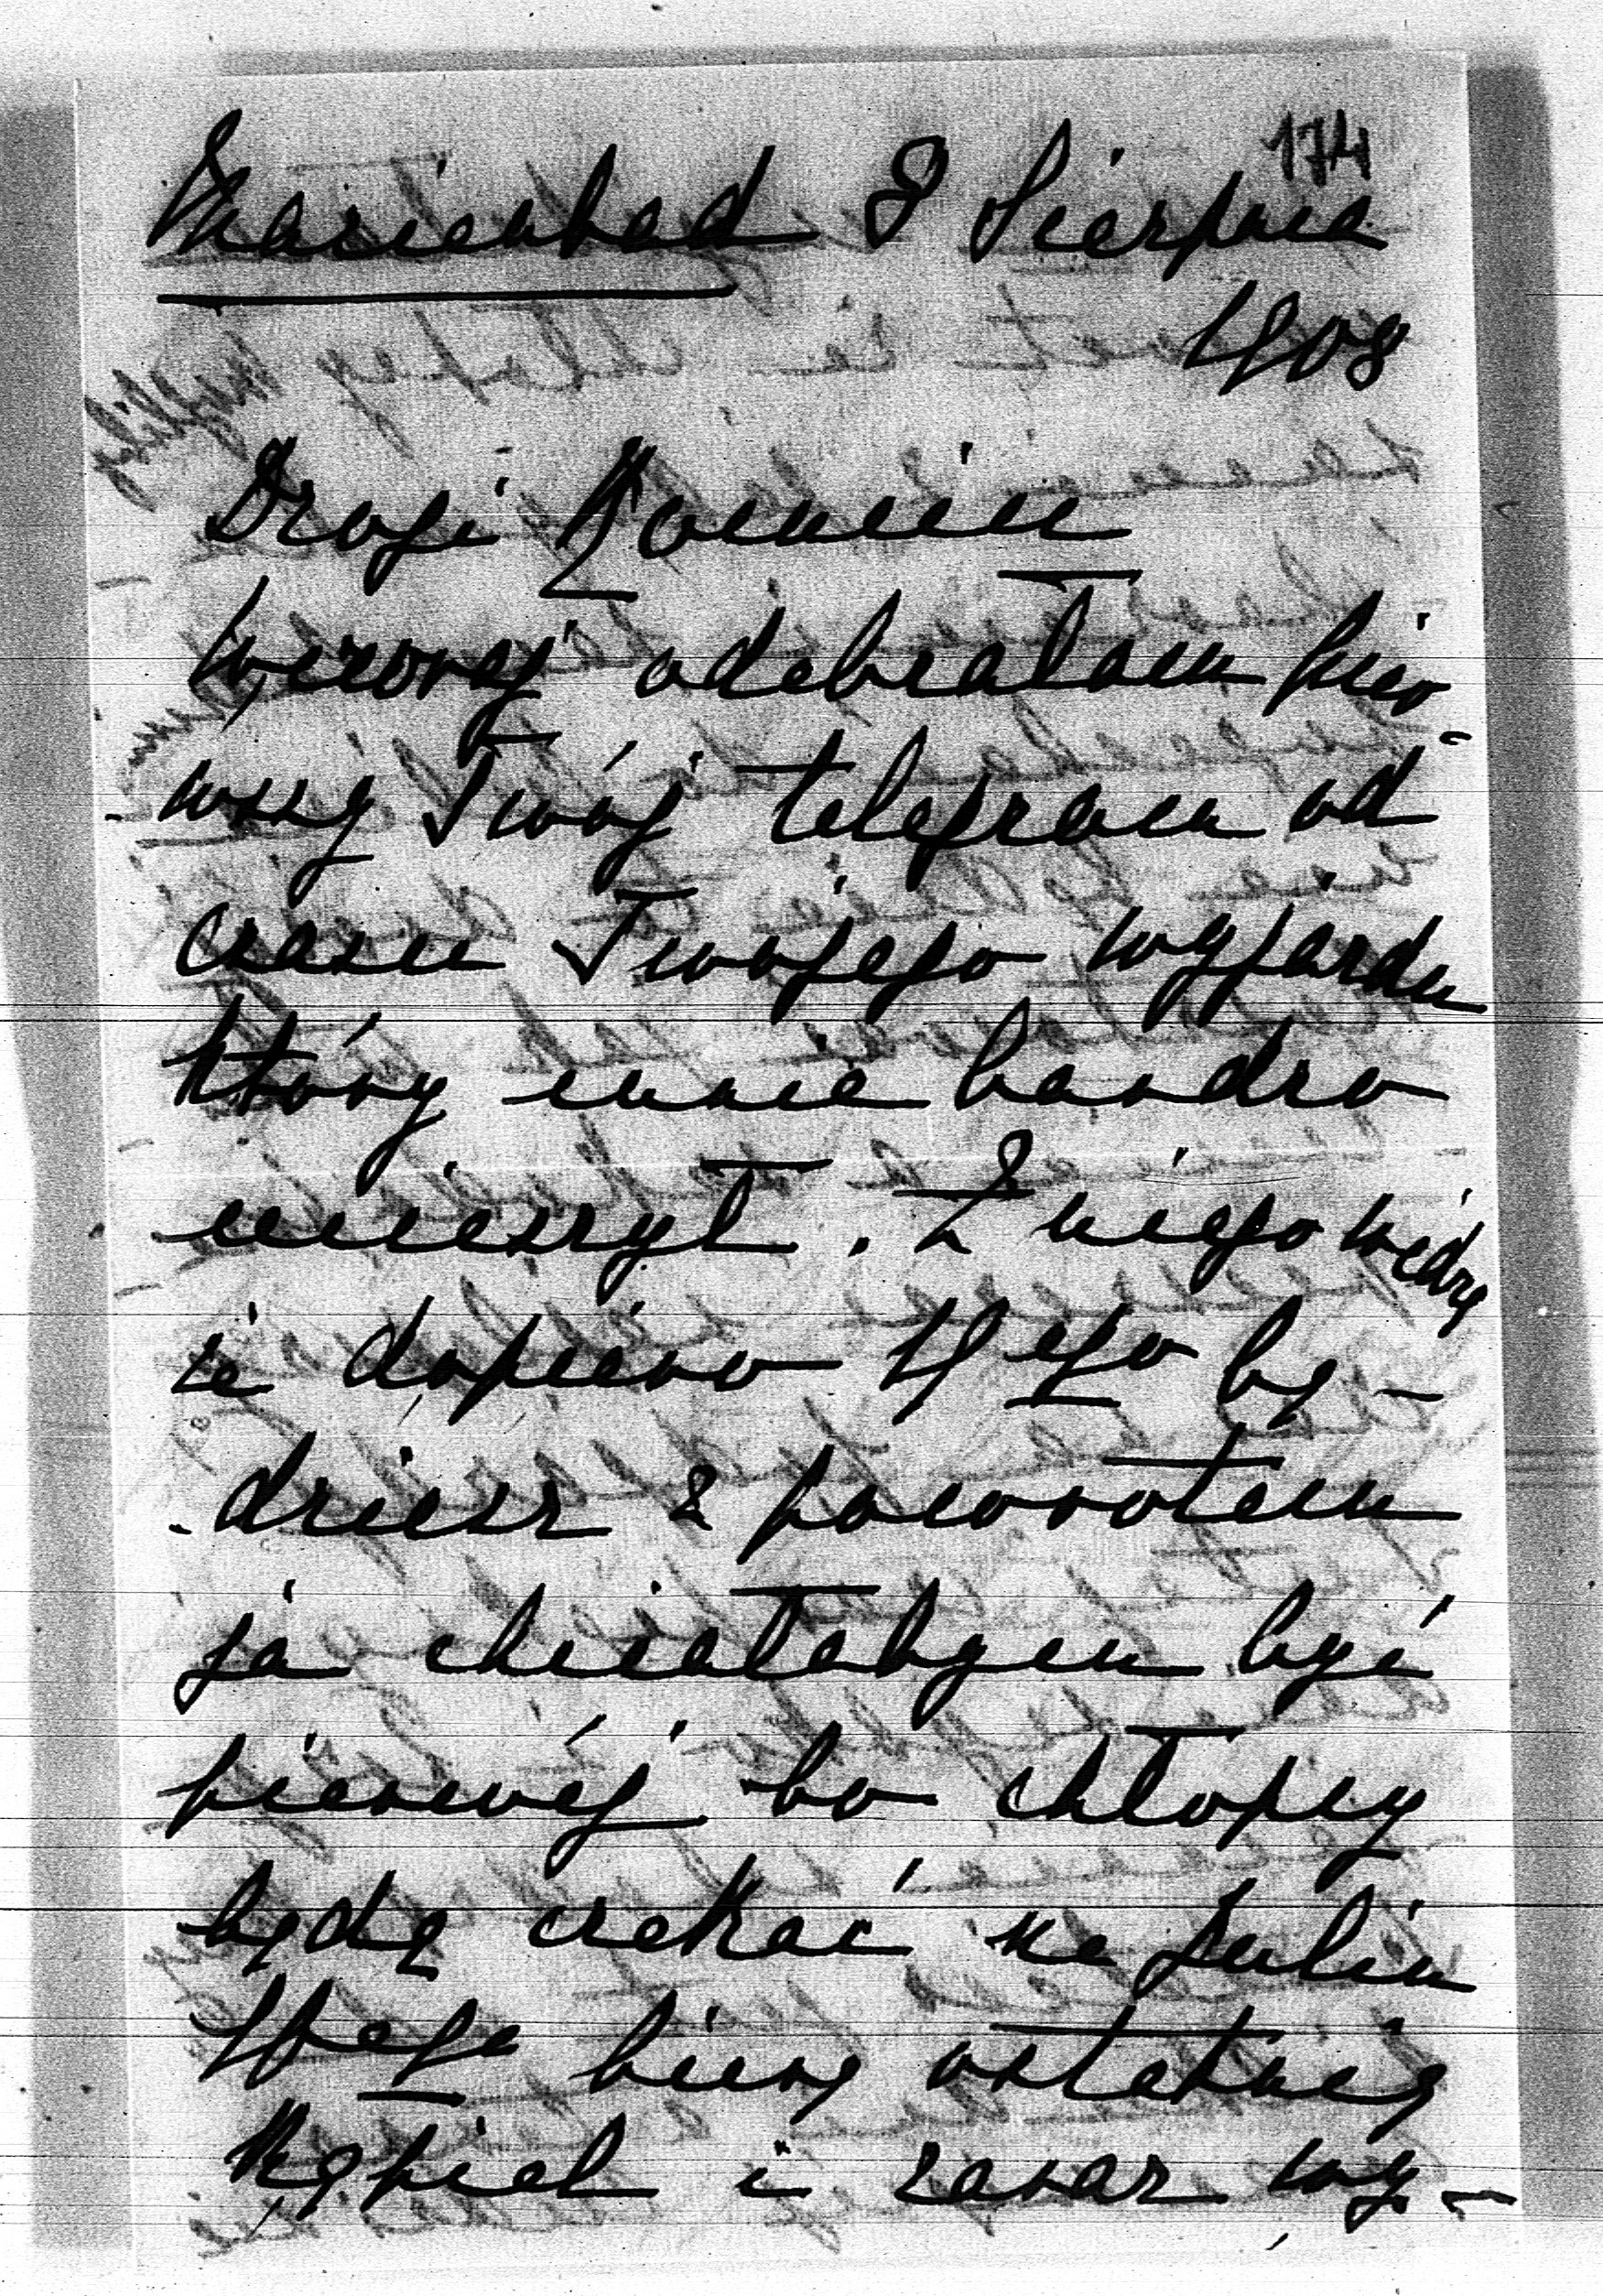 174
Marienbad 8 Sierpnia
1908
Drogi Kominiu
Wczoraj odebrałam pier-
wszy Twój telegram od
czasu Twojego wyjazdu
który mnie bardzo
ucieszył. Z niego widzę
że dopiero 19ego bę-
dziesz z powrotem
ja chciałabym być
pierwéj bo chłopcy
będą czekać na Julin
biorę ostatnią
kąpiel i zaraz wy-